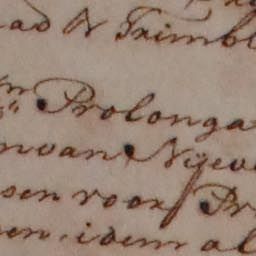 ad & Trimbl
m Prolonga
nvan Nyeve
sen voor Pr
en idem al